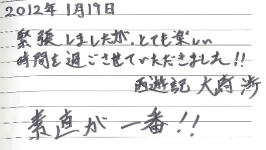 2012年 1月19日
緊張しましたが、とても楽しい
時間を過ごさせていただきました!!
西遊記 大府 渉
素直が一番!!